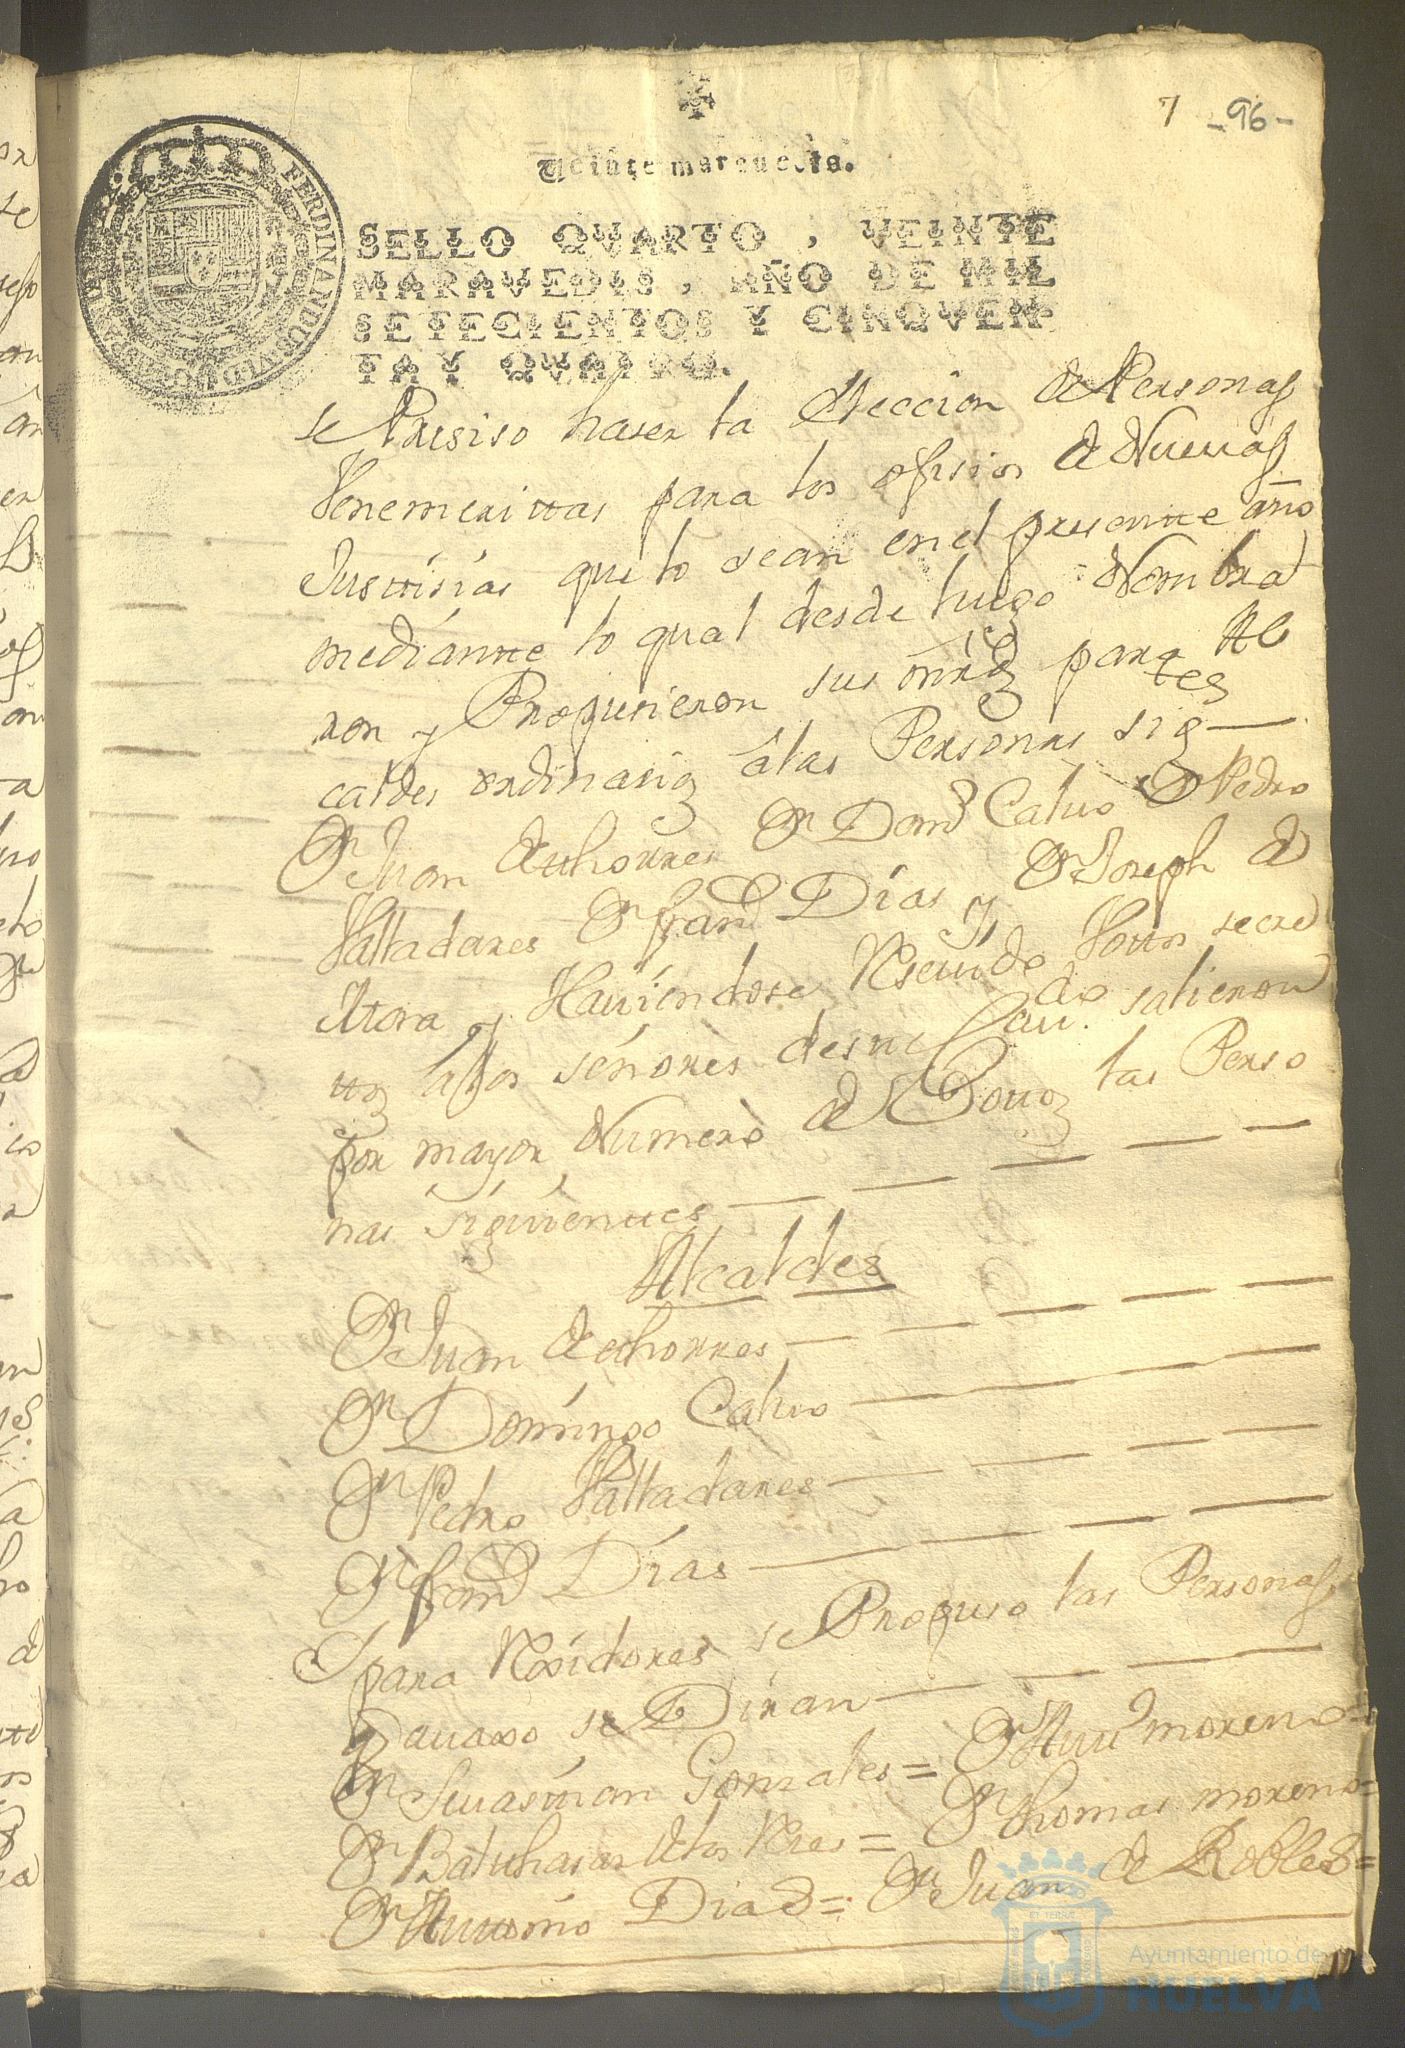 7 -96-
Veinte marauedis.
FERDINANDUS VI D G
SELLO QVARTO, VEINTE
MARAVEDIS, AÑO DE MIL
SETECIENTOS Y CINQVEN-
TA Y QVATRO.
se Presiso haser la Eleccion de Personas
Venemerittas para los ofisios de Nueuas
Justtisias que lo sean en el presentte año
mediantte lo qual desde luego Nombra
ron y Propusieron sus mrds para Al
caldes ordinarios â las Personas sigtes
Dn Juan de thorres Dn Domo Caluo Dn Pedro
Valladares Dn franco Dias y Dn Joseph de
Mora y Hauiendose Reseuido Votos secre
ttos a los señores deste Cauo salieron
por mayor Numero de Votos las Perso
nas siguienttes
Alcaldes
Dn Juan de thorres
Dn Domingo Caluo
Dn Pedro Valladares
Dn franco Dias
Y para Rexidores se Propuso las Personas
q auaxo se Diran
Dn Seuastian Gonzales = Dn Anto moreno =
Dn Balthasar de los Reies = Dn thomas moreno =
Dn Anttonio Diaz = Dn Juan de Robles =
Ayuntamiento de
HUELVA